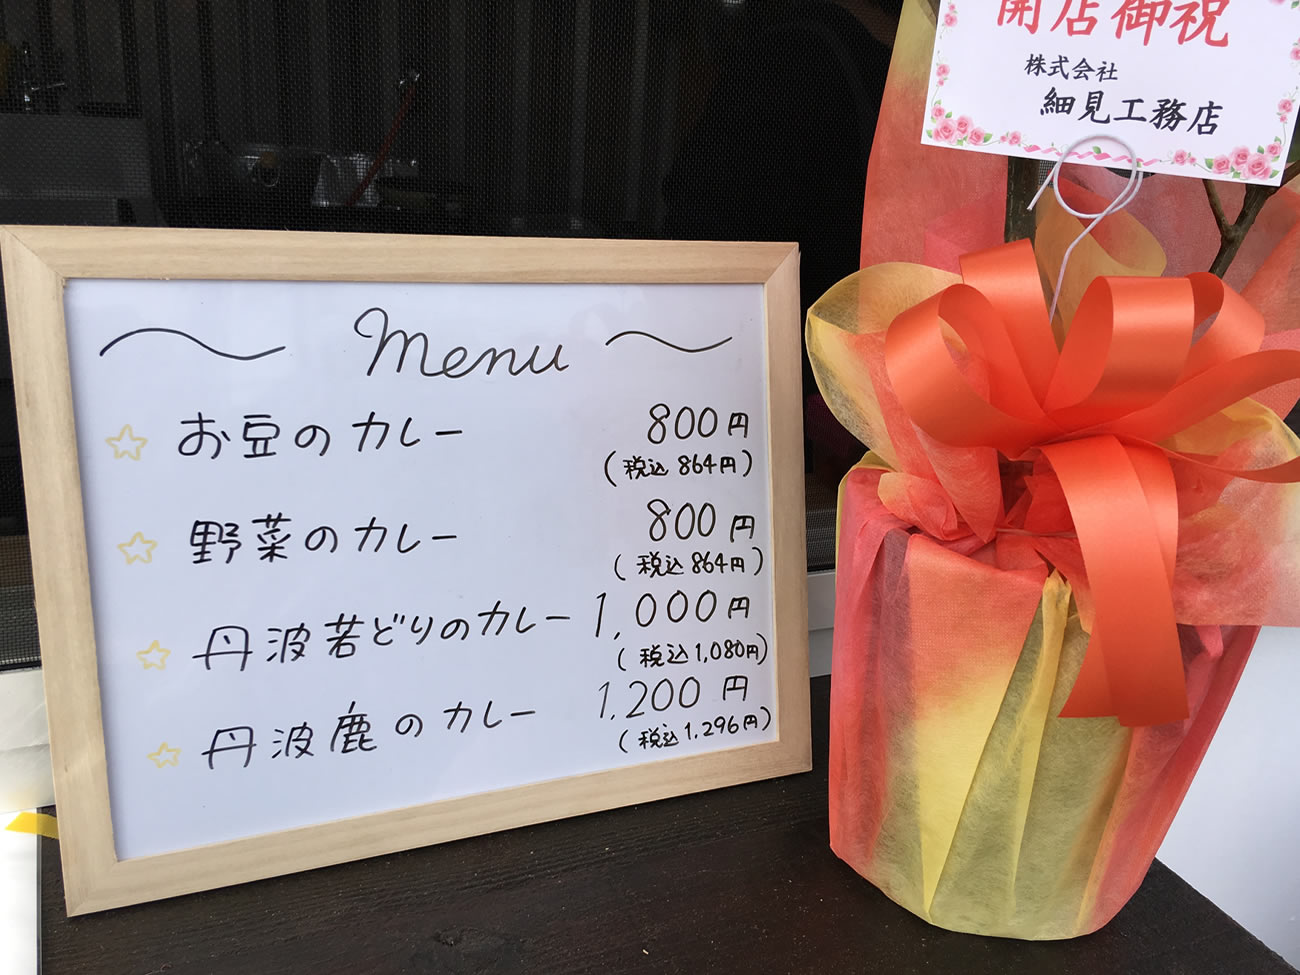 menu
お豆のカレー 800円
(税込864円)
野菜のカレー 800円
(税込864円)
丹波若どりのカレー 1,000円
(税込1,080円)
丹波鹿のカレー 1,200円
(税込1,296円)
開店御祝
株式会社
細見工務店